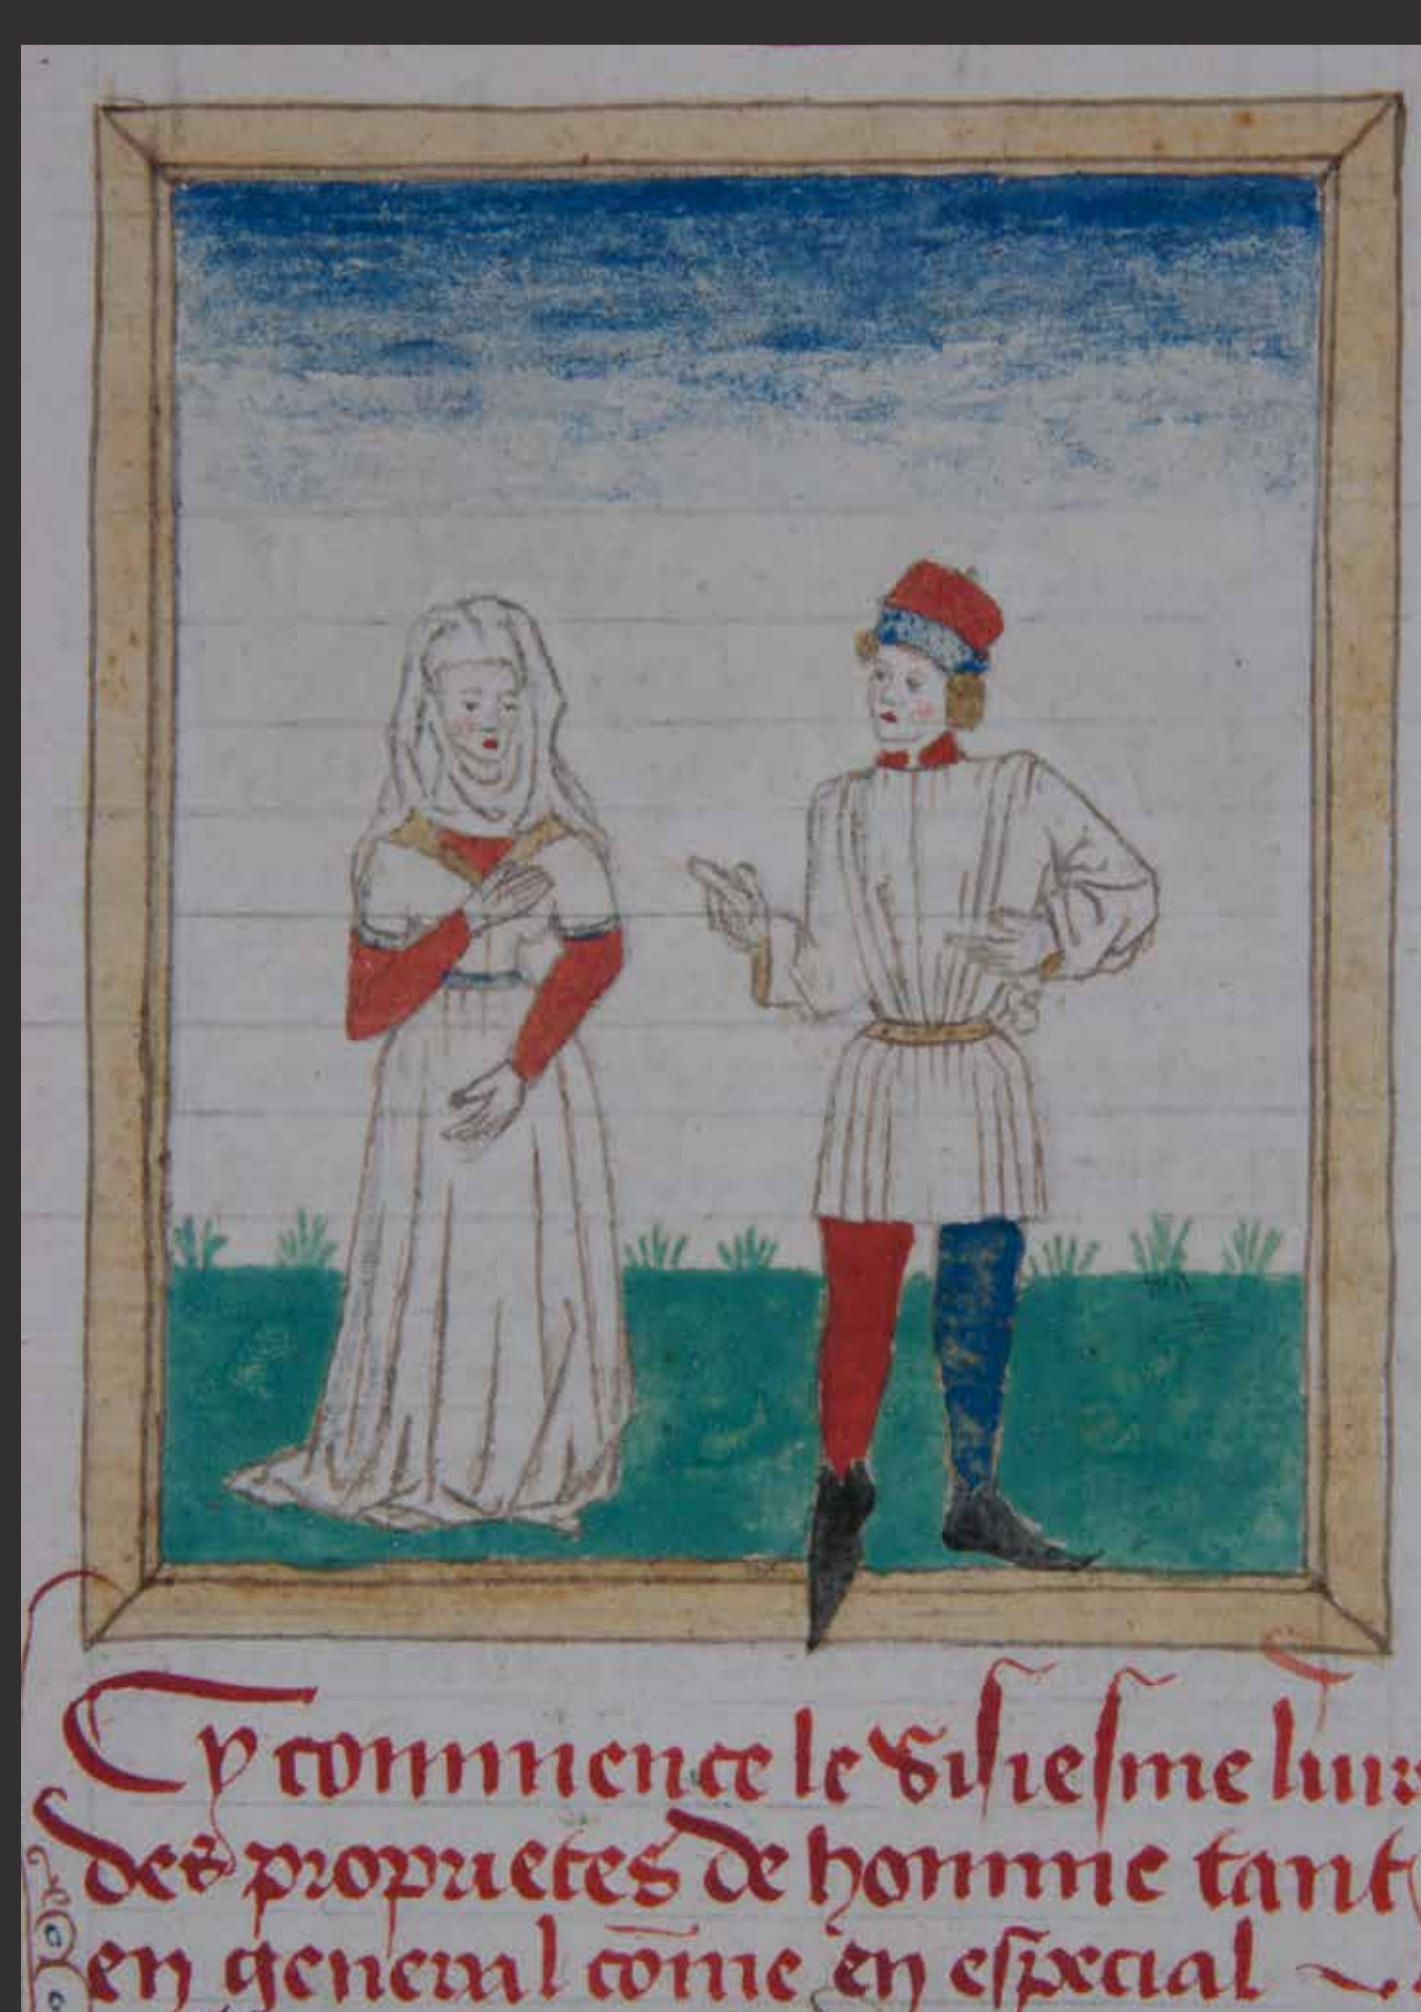 Cy commence le sisiesme liur
des proprietes de homme tant
en general cōme en especial